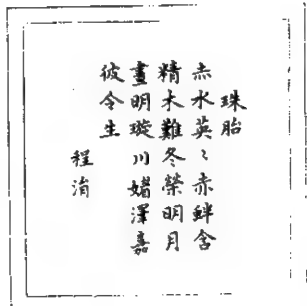 珠胎
赤水英〻赤蚌含
精木難冬榮明月
晝明璇川媚澤嘉
彼令生
程淯